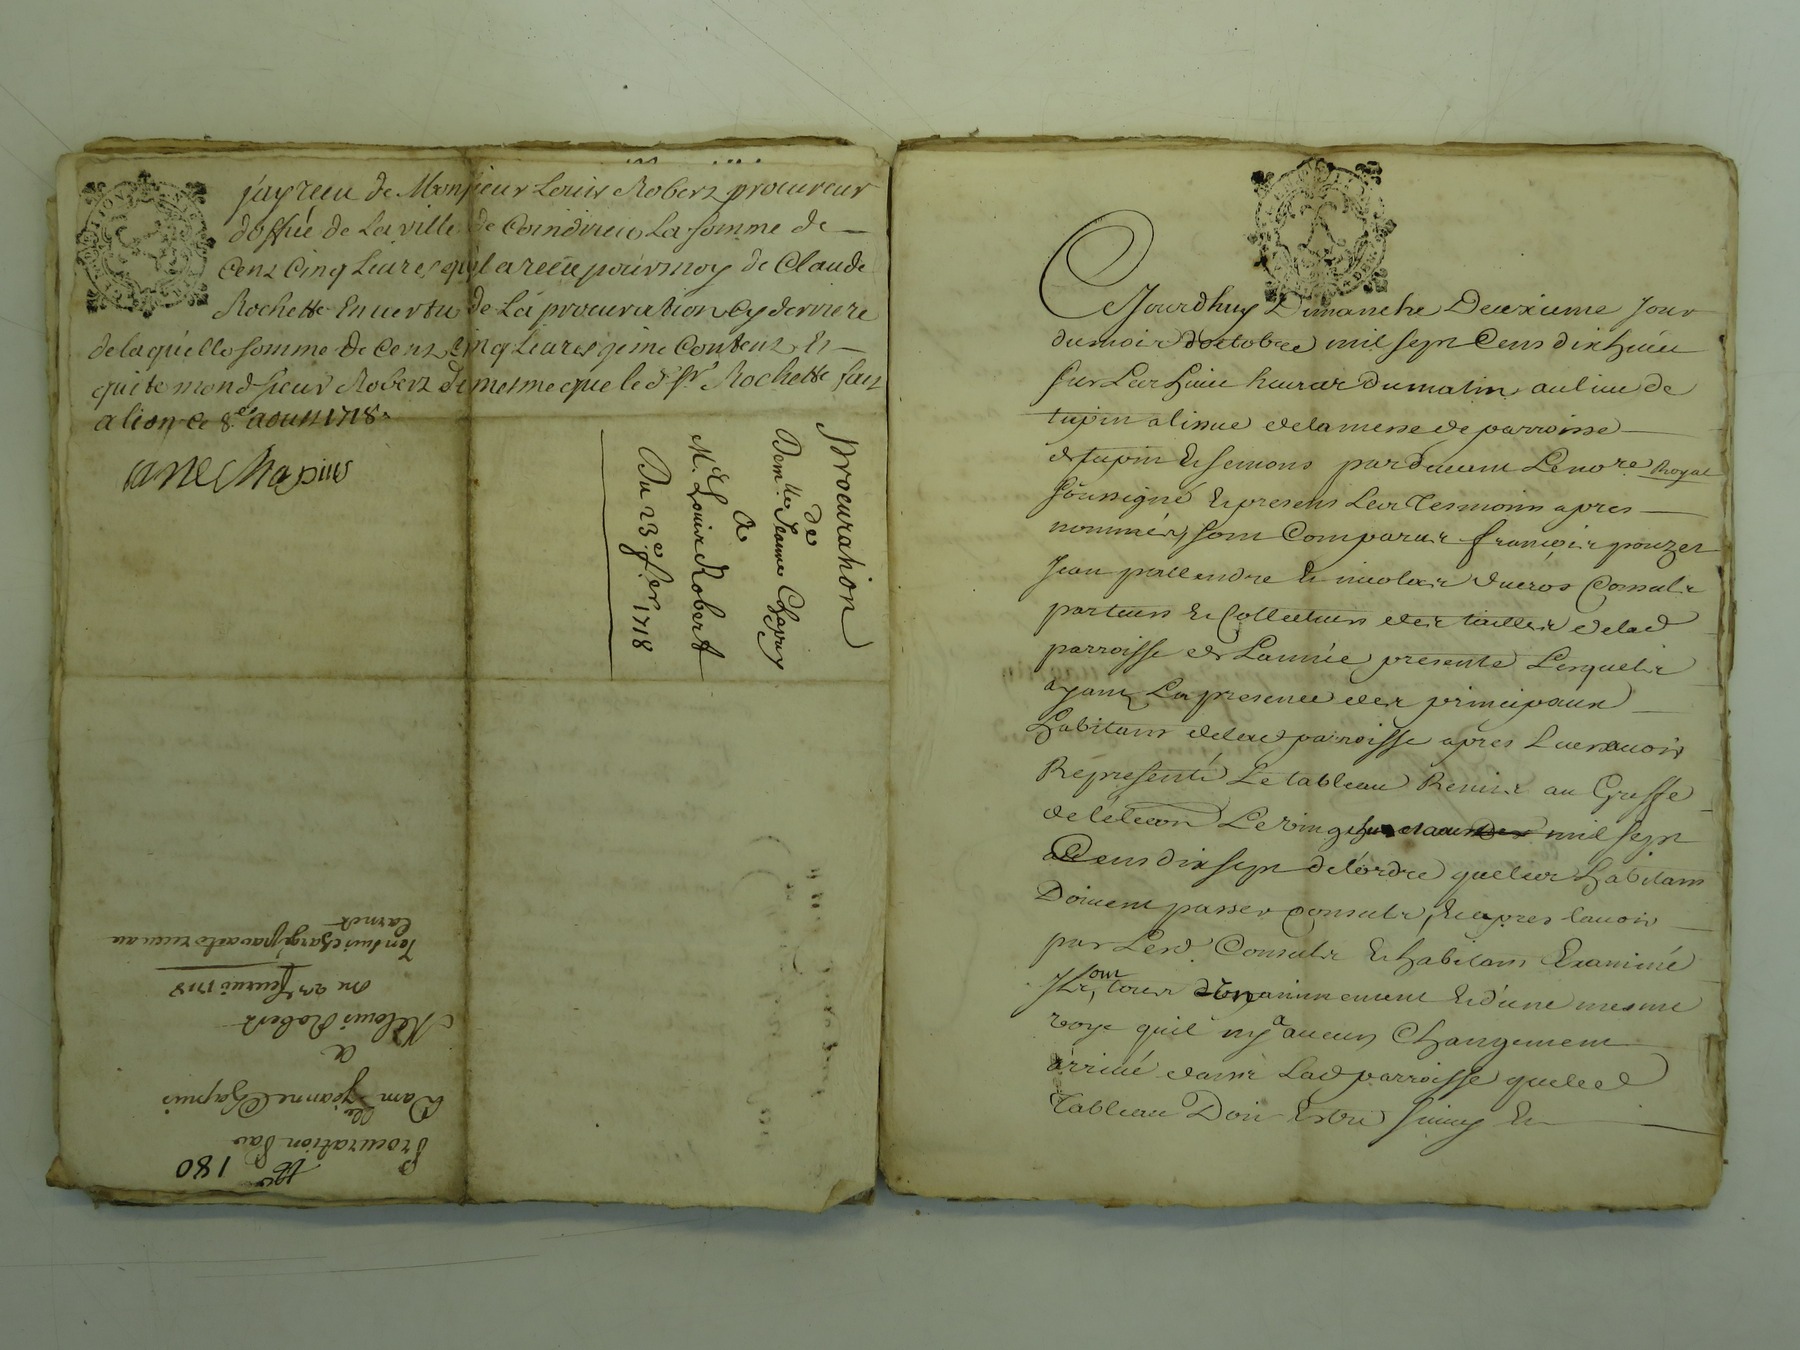 j'ay receu de Monsieur Louis Robert procureur
doffice de la ville de Condrieu la somme de
Cent Cinq Liures quil a receu pour moy de Claude
Rochette En uertu de La procuration cy derriere
de laquelle somme de Cent Cinq Liures je me Contente Et
quite mond sieur Robert de mesme que le d sr Rochette fait
a lion ce 8e aoust 1718
Chapuis
Procuration
de
Demlle Jeanne Chapuy
A
Mr Louis Robert
Du 23e fer 1718
180
Procuration Par
Damlle jeanne Chapuis
a
Me louis Robert
Du feurier 1718
carnet
Ce Jourdhuy Dimanche Deuxieme Jour
du mois doctobre mil sept Cens dix huiet
sur Les huiet heures du matin au lieu de
tupin a lissue de la messe de parroisse
de tupin Et semons pardeuant Le nore Royal
soussigné Et presens Les Tesmoins apres
nommés, sont Comparus françois pouzet
Jean pallendre Et nicolas ducros Consuls
parteurs Et Collecteurs des tailles de lad
parroisse de Lannée presente Lesquels
ayant La presence des principaux
Habitans de lad parroisse apres Leur auoir
Representé Le tableau Remis au Greffe
de lélection Le vingt mil sept
Cens dix sept de lordre que les habitans
Doiuent passer Consuls, Et apres lauoir
par Lesd. Consuls Et habitans Examiné
Ils ont, tous unanimement Et d'une mesme
voye quil ny a aucun Changement
arriué dans Lad parroisse que led
Tableau Doit Estre suiuy Et